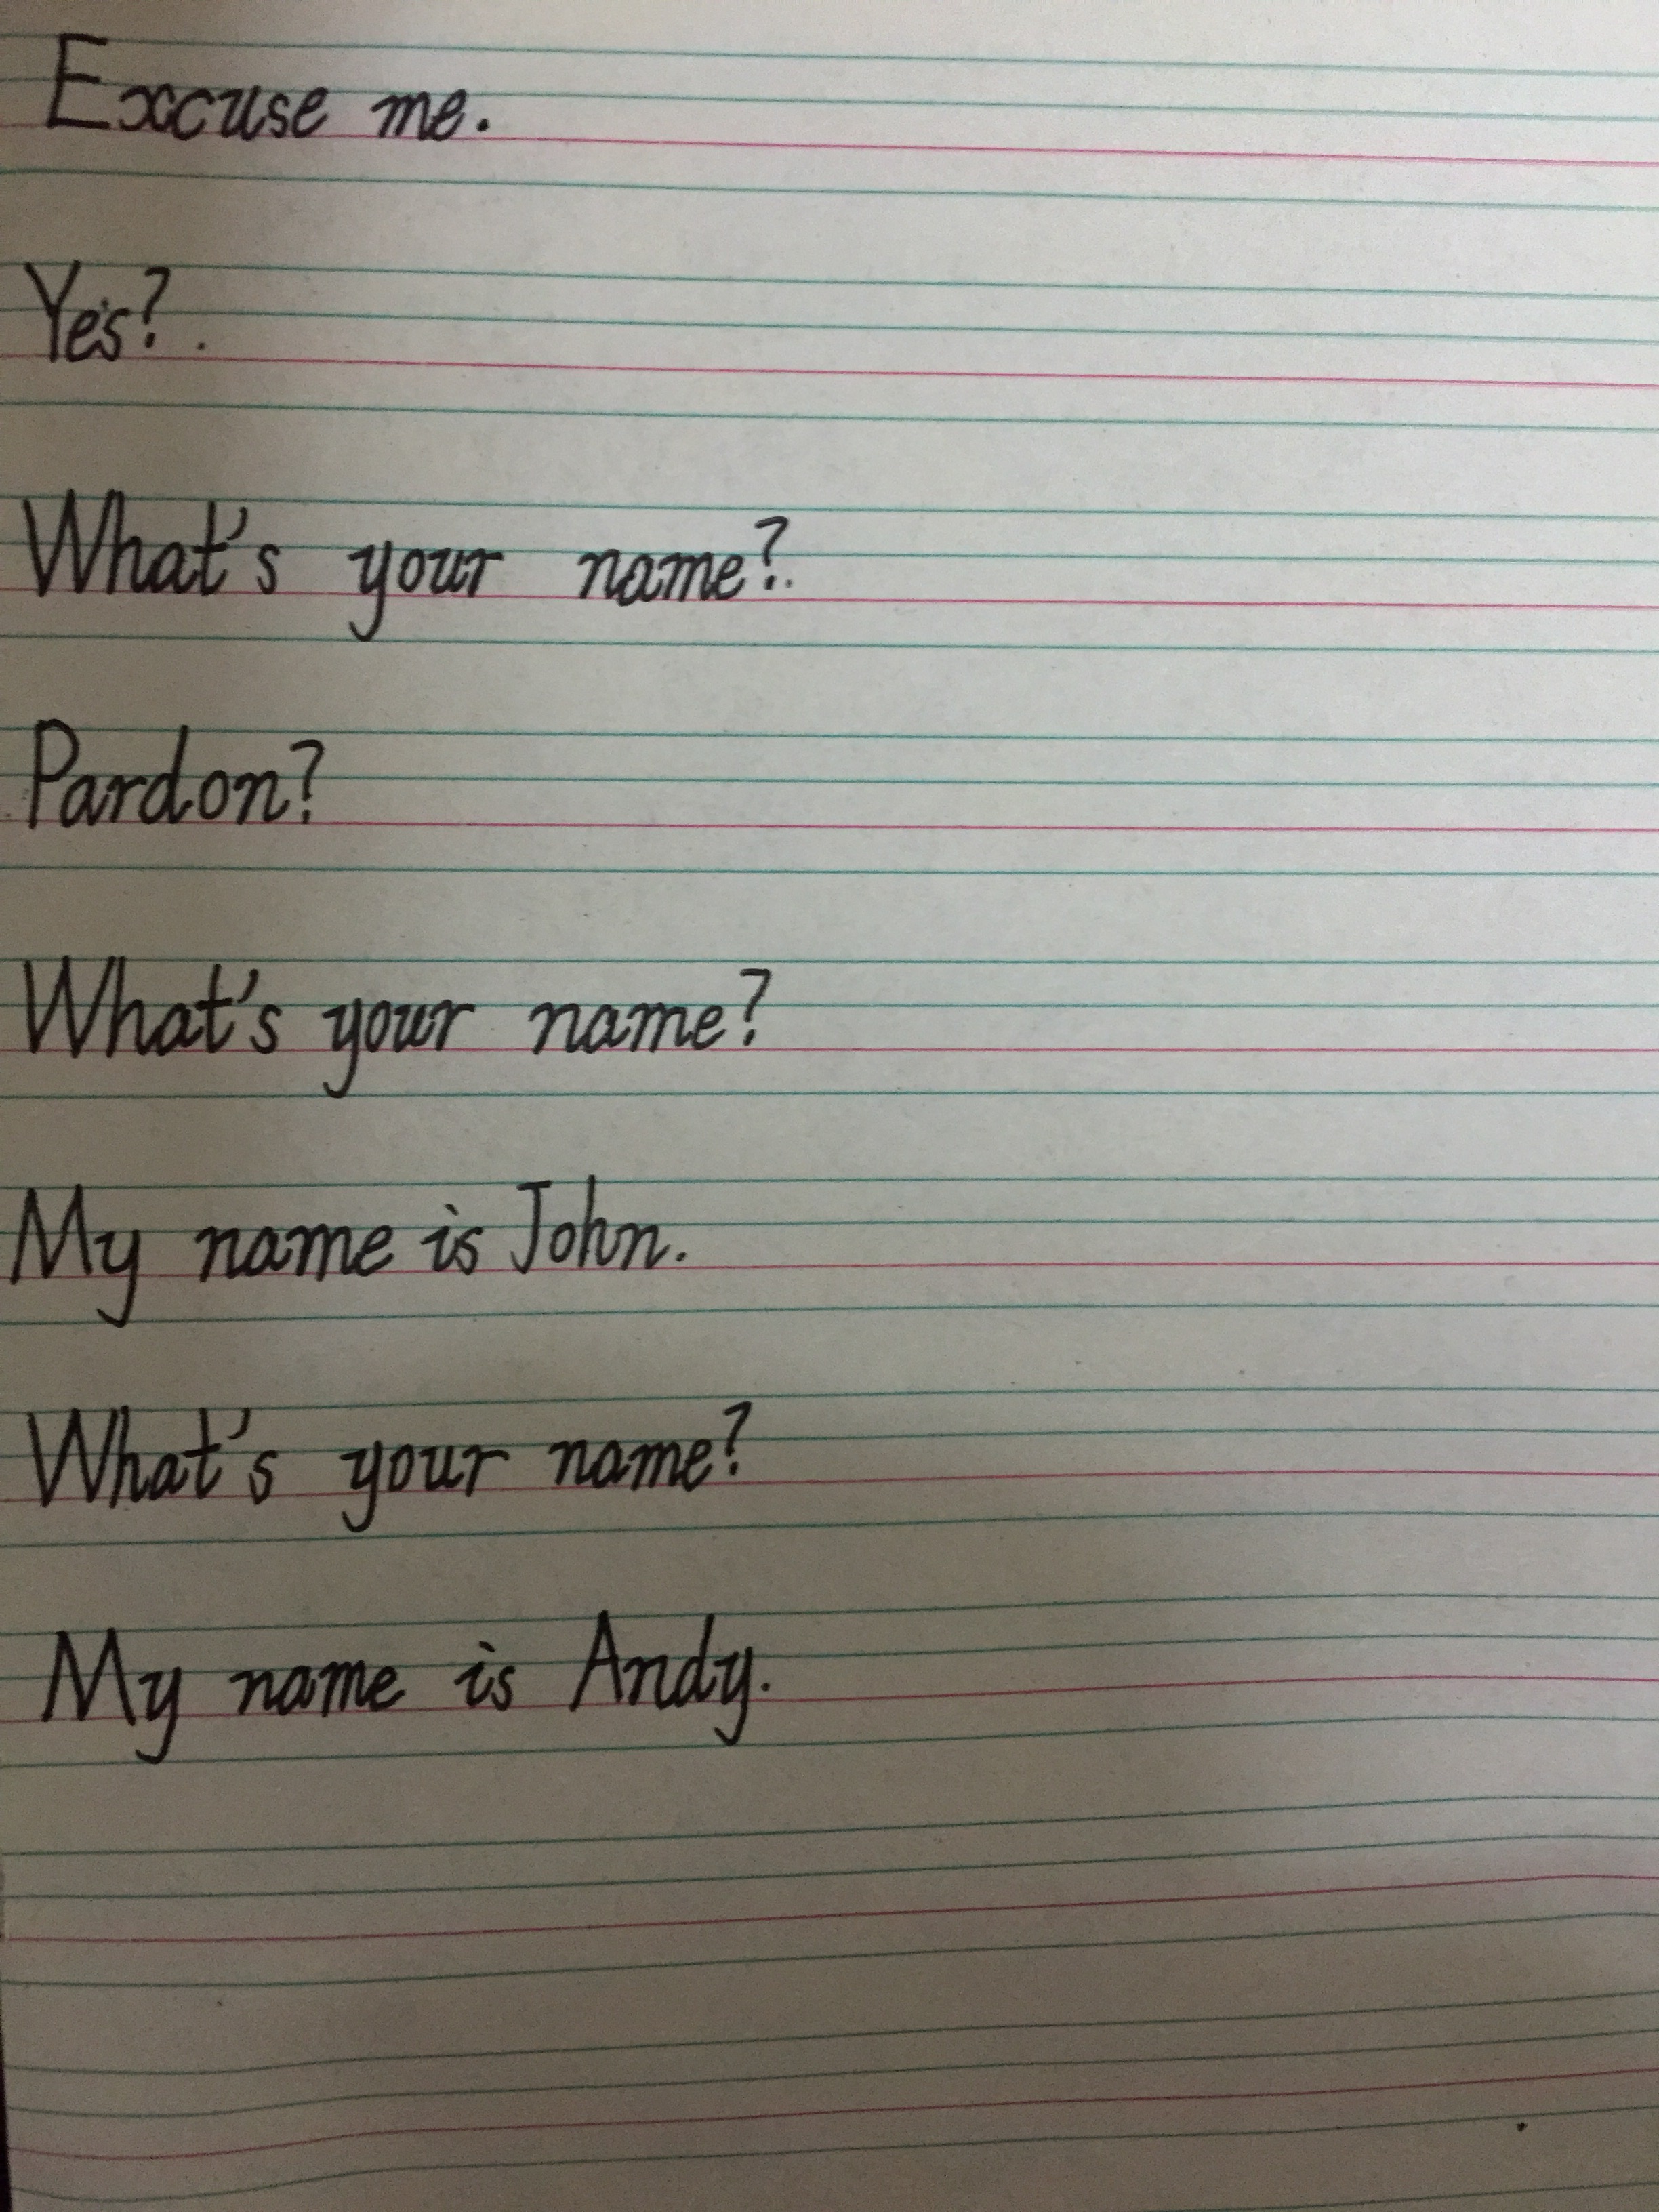 Excuse me.
Yes?
What's your name?
Pardon?
What's your name?
My name is John.
What's your name?
My name is Andy.